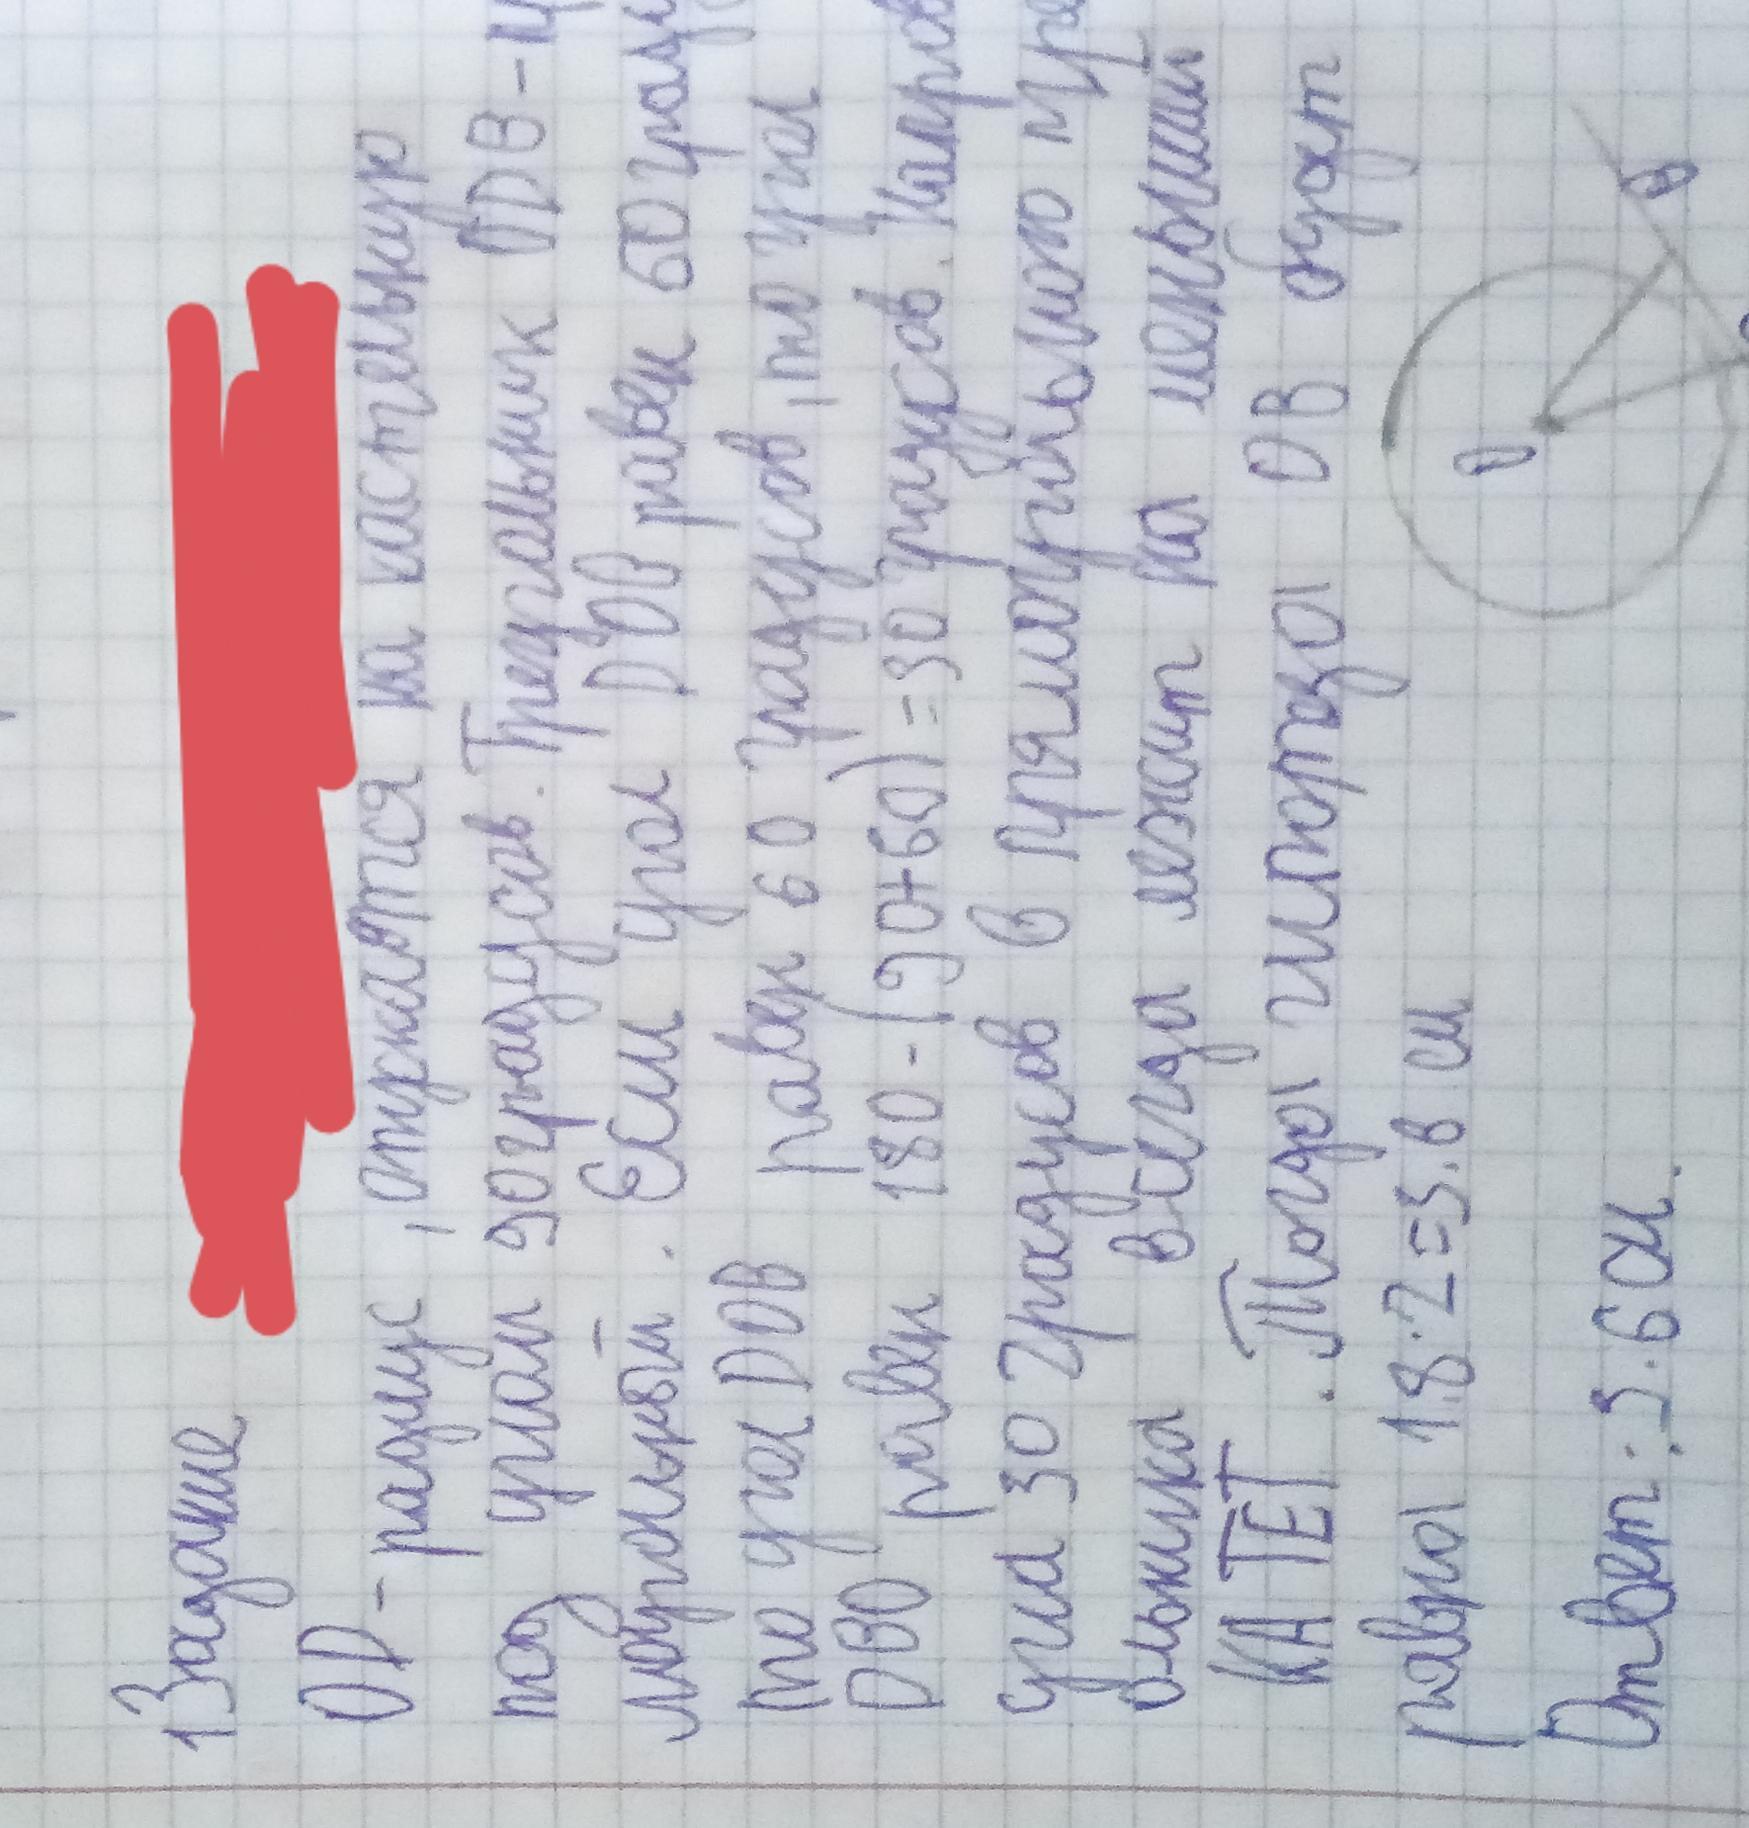 1 Задание
OD - радиус, отпускается на касательную
под углом 90 градусов. Треугольник ODB - п
моугольный. Если угол DOB равен 60 граду
то угол DOB равен 60 градусов, то угол
DBO равен 180 - (90+60) = 30 градусов. Напров
угла 30 градусов в прямоугольного тре
ольника всегда лежит на меньший
КАТЕТ. Тогда гипотеза OB будет
равна 1.8 · 2 = 3.6 см
Ответ: 3.6 см.
O
B